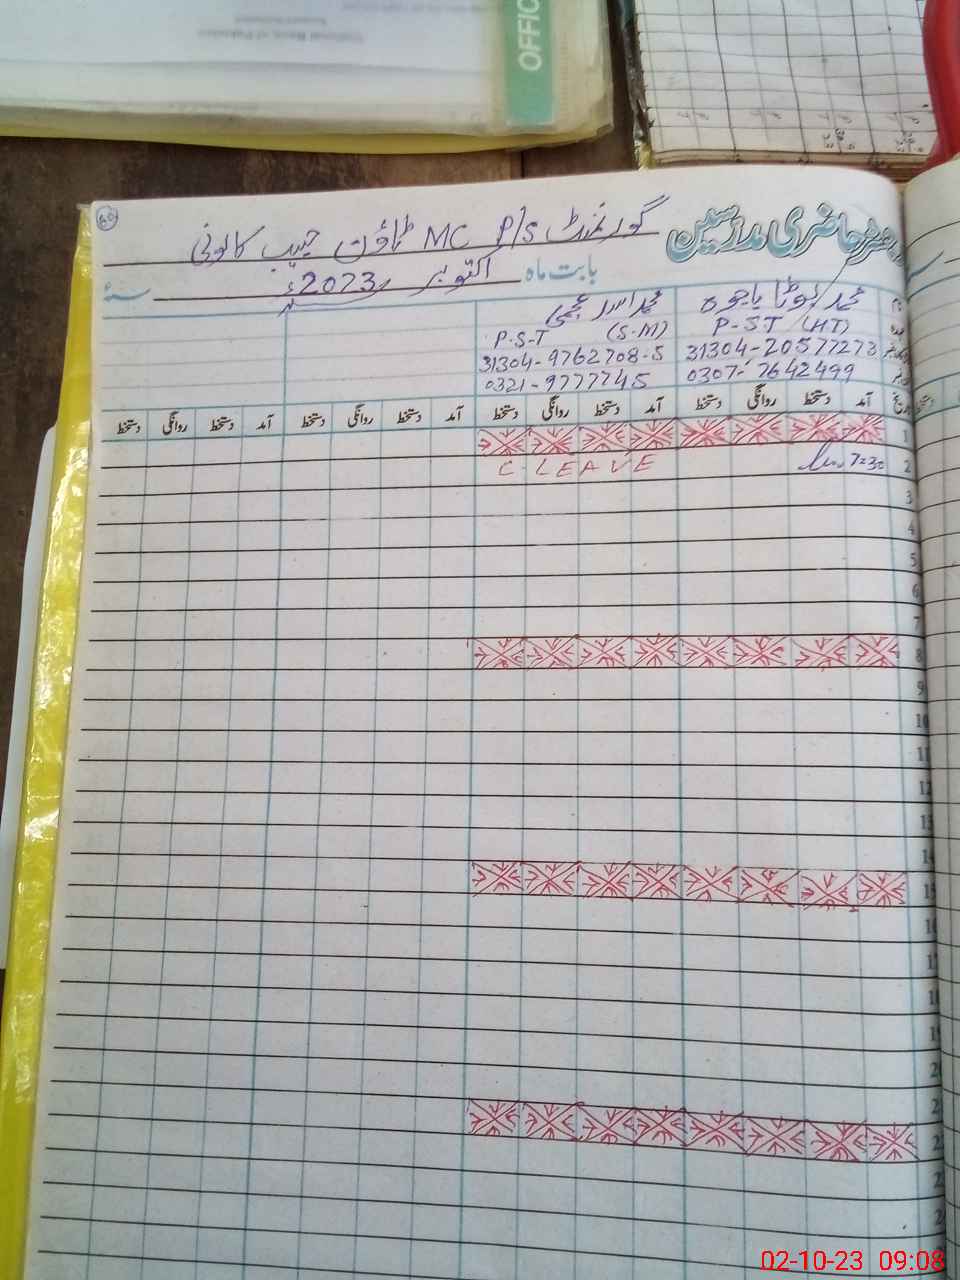 OFFIC
National Bank of Pakistan
رجسٹر حاضری مدرسین
گورنمنٹ P/S MC ٹاؤن حبیب کالونی
بابت ماہ اکتوبر 2023ء سنہ
محمد بوٹا باجوہ
P-S-T (HT)
31304-20577273
0307-7642499
محمد اسد
P.S-T (S.M)
31304-9762708-5
0321-9777745
آمد دستخط روانگی دستخط آمد دستخط روانگی دستخط آمد دستخط روانگی دستخط آمد دستخط روانگی دستخط
1
2 7:30 C LEAVE
3
4
5
6
7
8
9
10
11
12
13
14
15
16
17
18
19
02-10-23 09:08